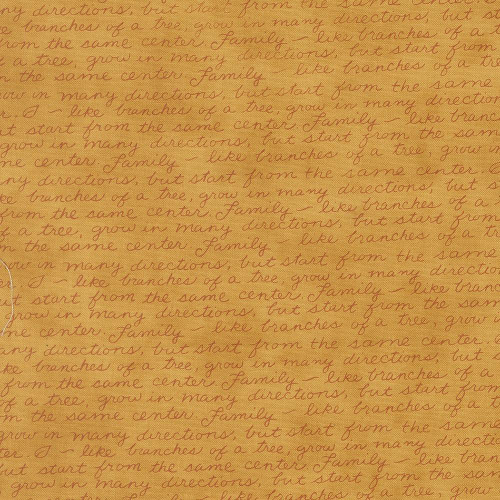 ny directions, but start from the same center.
e branches of a tree, grow in many directions, but s
from the same center. Family — like branches of a t
f a tree, grow in many directions, but start from
n the same center. Family like branches of a tre
ow in many directions, but start from the same
r. — like branches of a tree, grow in many direction
ut start from the same center. Family — like branc
grow in many directions, but start from the sam
me center. Family — like branches of a tree, grow in
ny directions, but start from the same center.
ke branches of a tree, grow in many directions, but s
from the same center. Family — like branches of a
f a tree, grow in many directions, but start from
n the same center. Family like branches of a tr
ow in many directions, but start from the same
er. — like branches of a tree, grow in many directio
ut start from the same center. Family — like branc
grow in many directions, but start from the sam
me center. Family — like branches of a tree, grow
any directions, but start from the same center.
ke branches of a tree, grow in many directions, but
from the same center. Family — like branches of a
of a tree, grow in many directions, but start from
m the same center. Family like branches of a t
grow in many directions, but start from the same
ter. — like branches of a tree, grow in many directio
but start from the same center. Family — like bran
grow in many directions, but start from the sa